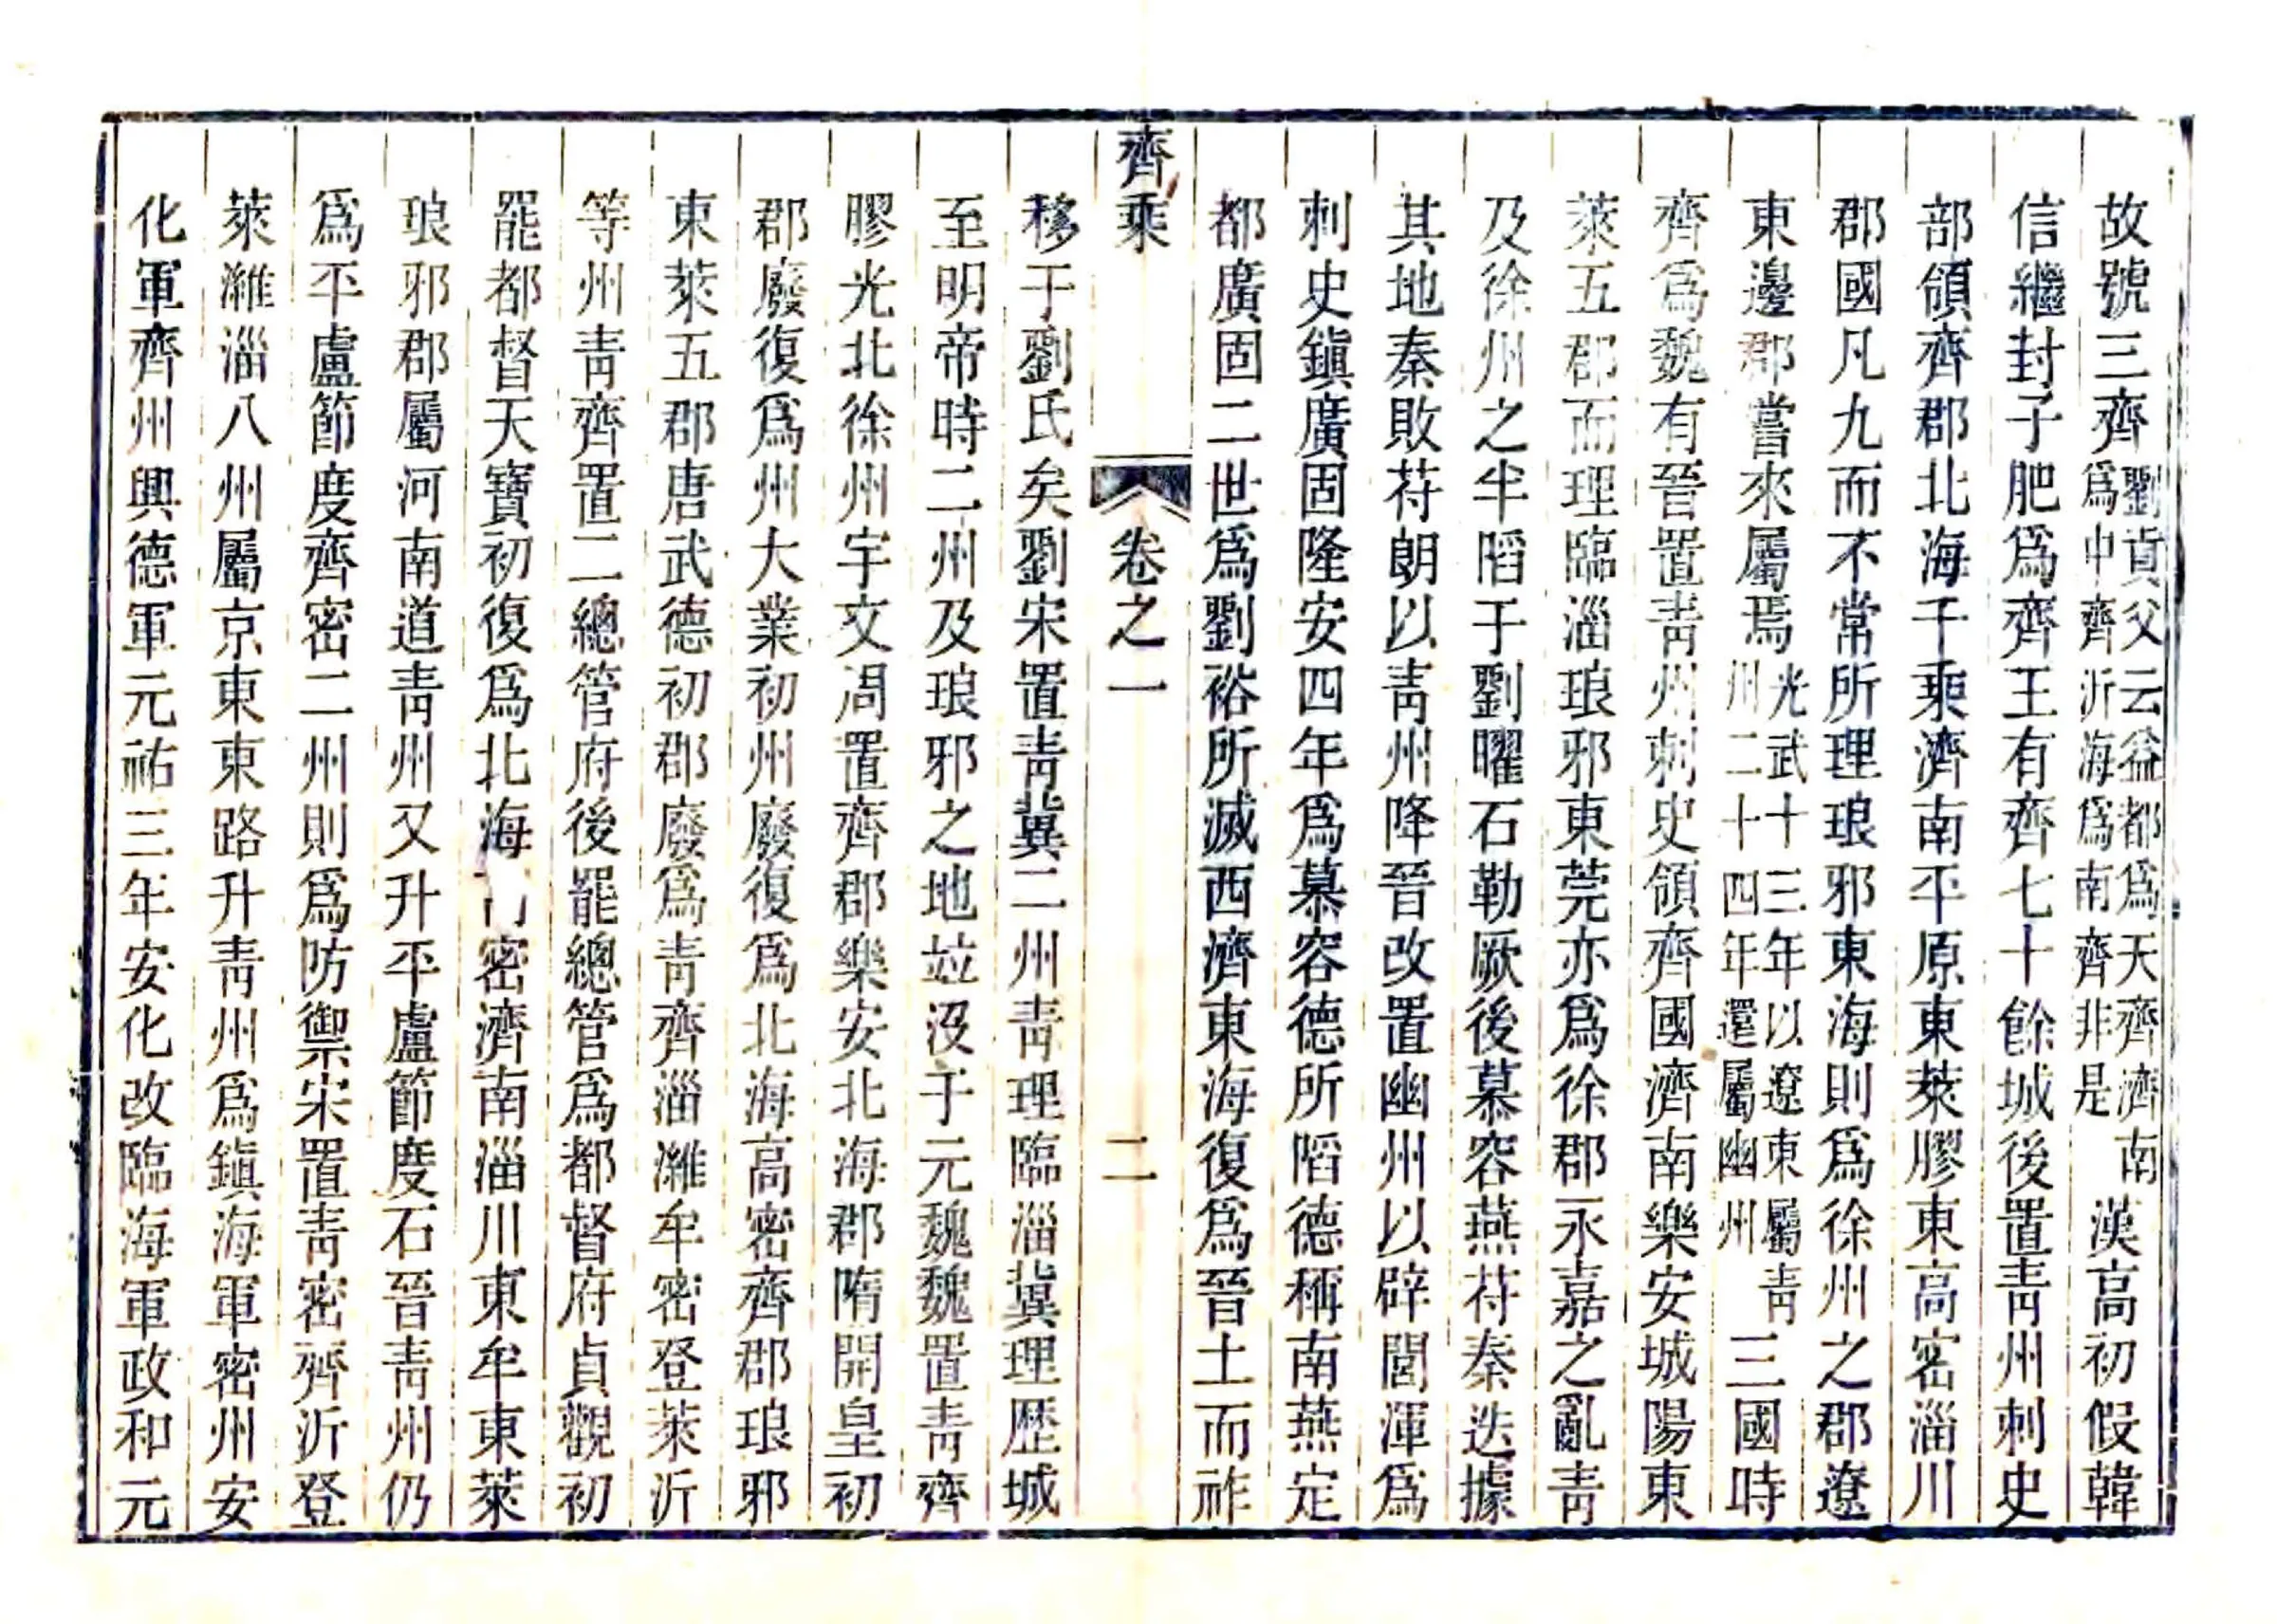 故號三齊劉貢父云益都爲天齊濟南爲中齊沂海爲南齊非是漢高初假韓
信繼封子肥爲齊王有齊七十餘城後置靑州刺史
部領齊郡北海千乘濟南平原東萊膠東高密淄川
郡國凡九而不常所理琅邪東海則爲徐州之郡遼
東邊郡嘗來屬焉光武十三年以遼東屬靑州二十四年還屬幽州三國時
齊爲魏有晉置靑州刺史領齊國濟南樂安城陽東
萊五郡而理臨淄琅邪東莞亦爲徐郡永嘉之亂靑
及徐州之半䧟于劉曜石勒厥後慕容燕苻秦迭據
其地秦敗苻朗以靑州降晉改置幽州以辟閭渾爲
刺史鎭廣固隆安四年爲慕容德所䧟德稱南燕定
都廣固二世爲劉裕所滅西濟東海復爲晉土而祚
齊乘 卷之一 二
移于劉氏矣劉宋置靑冀二州靑理臨淄冀理歷城
至明帝時二州及琅邪之地竝沒于元魏魏置靑齊
膠光北徐州宇文周置齊郡樂安北海郡隋開皇初
郡廢復爲州大業初州廢復爲北海高密齊郡琅邪
東萊五郡唐武德初郡廢爲靑齊淄濰牟密登萊沂
等州靑齊置二總管府後罷總管爲都督府貞觀初
罷都督天寶初復爲北海密濟南淄川東牟東萊
琅邪郡屬河南道靑州又升平盧節度石晉靑州仍
爲平盧節度齊密二州則爲防禦宋置靑密齊沂登
萊濰淄八州屬京東東路升靑州爲鎭海軍密州安
化軍齊州興德軍元祐三年安化改臨海軍政和元